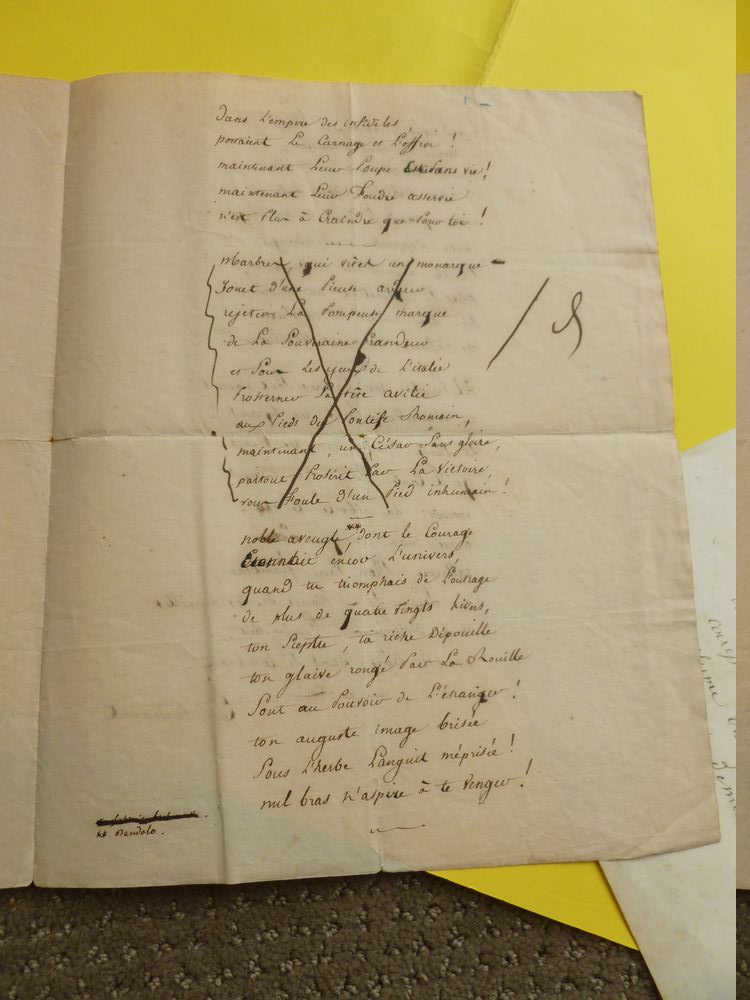 Dans L'empire des infideles,
portaient Le Carnage et L'effroi !
maintenant Leur Poupe Est Sans vie !
maintenant Leur Foudre asservie
n'est Plus à Craindre que Pour toi !
Marbres, qui vites un monarque
Jouet d'une Pieuse
rejeter La Pompeuse marque
de La Souveraine Grandeur
et Sous Les yeux de L'italie
Prosterner Sa tête avilie
aux Pieds du Pontife Romain,
maintenant, un César Sans gloire,
partout Proscrit Par La Victoire,
vous Foule d'un Pied inhumain !
noble aveugle,** Dont le Courage
Etonnait encor L'univers,
quand tu triomphais de L'outrage
de plus de quatre vingts hivers,
ton Sceptre, ta riche Dépouille
ton glaive rongé Par La Rouille
Sont au Pouvoir de L'étranger !
ton auguste image brisée
Sous L'herbe Languit méprisée !
nul bras n'aspire à te Venger !
** Dandolo.